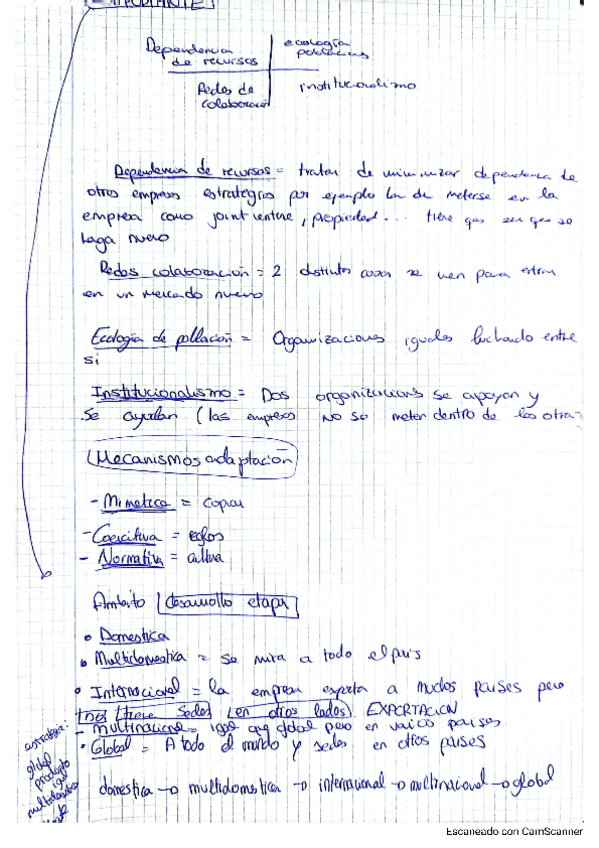 IMPORTANTE
Dependencia de recursos | ecología población
Redes de colaboración | institucionalismo
Dependencia de recursos = tratar de minimizar dependencia de
otras empresas estrategias por ejemplo la de meterse en la
empresa como joint venture, propiedad... tiene que ser que se
haga nuevo
Redes colaboración = 2 distintas cosas se unen para entrar
en un mercado nuevo
Ecología de población = Organizaciones iguales luchando entre
si
Institucionalismo = Dos organizaciones se apoyan y
se ayudan (las empresas no se meten dentro de las otras
Mecanismos adaptación
- Mimetica = copiar
- Coercitiva = reglas
- Normativa = cultura
Ámbito desarrollo etapa
• Domestica
• Multidomestica = se mira a todo el país
• Internacional = la empresa exporta a muchos paises pero
no tiene sedes en otros lados. EXPORTACION
- Multinacional = igual que global pero en varios paises
• Global = A todo el mundo y sedes en otros paises
estrategia:
global
producto
multidomestica
domestica → multidomestica → internacional → multinacional → global
Escaneado con CamScanner